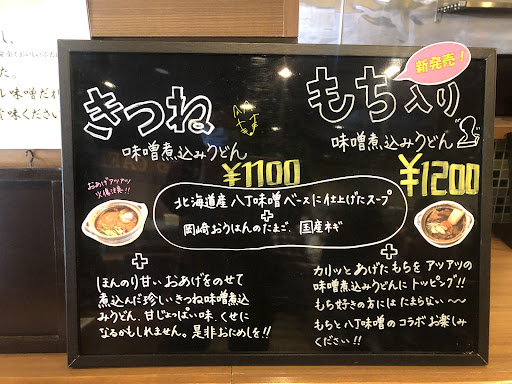 し、
た。
味噌だれ
味ください
新発売!
きつね
味噌煮込みうどん
¥1100
もち入り
味噌煮込みうどん
¥1200
おあげアツアツ
火傷注意!!
北海道産 八丁味噌ベースに仕上げたスープ
+
岡崎おうはんのたまご、国産ネギ
+
ほんのり甘い おあげをのせて
煮込んだ珍しい きつね味噌煮込
みうどん、甘じょっぱい味、くせに
なるかもしれません。是非おためしを!!
+
カリッとあげた もちを アツアツの
味噌煮込みうどんに トッピング!!
もち好きの方には たまらない〜〜
もちと八丁味噌の コラボ お楽しみ
ください!!